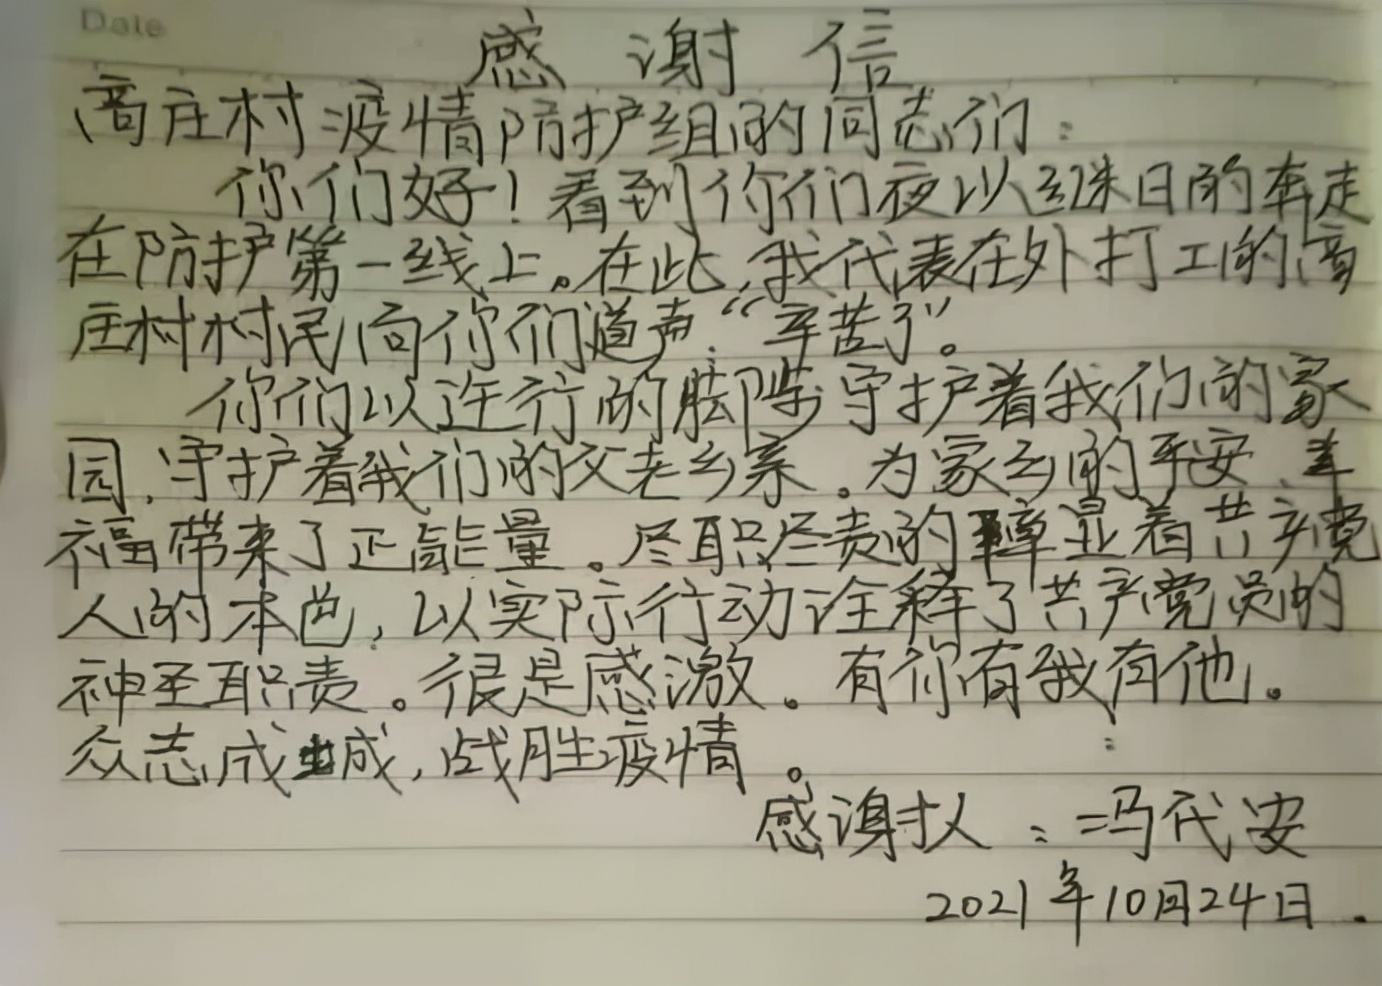 Date
感谢信
商庄村疫情防护组的同志们：
你们好！看到你们夜以继日的奔走
在防护第一线上。在此，我代表在外打工的商
庄村村民向你们道声：“辛苦了”。
你们以逆行的脚步守护着我们的家
园，守护着我们的父老乡亲。为家乡的平安、幸
福带来了正能量。尽职尽责的彰显着共产党
人的本色，以实际行动诠释了共产党员的
神圣职责。很是感激。有你有我有他。
众志成城，战胜疫情。
感谢人：冯代安
2021年10月24日.